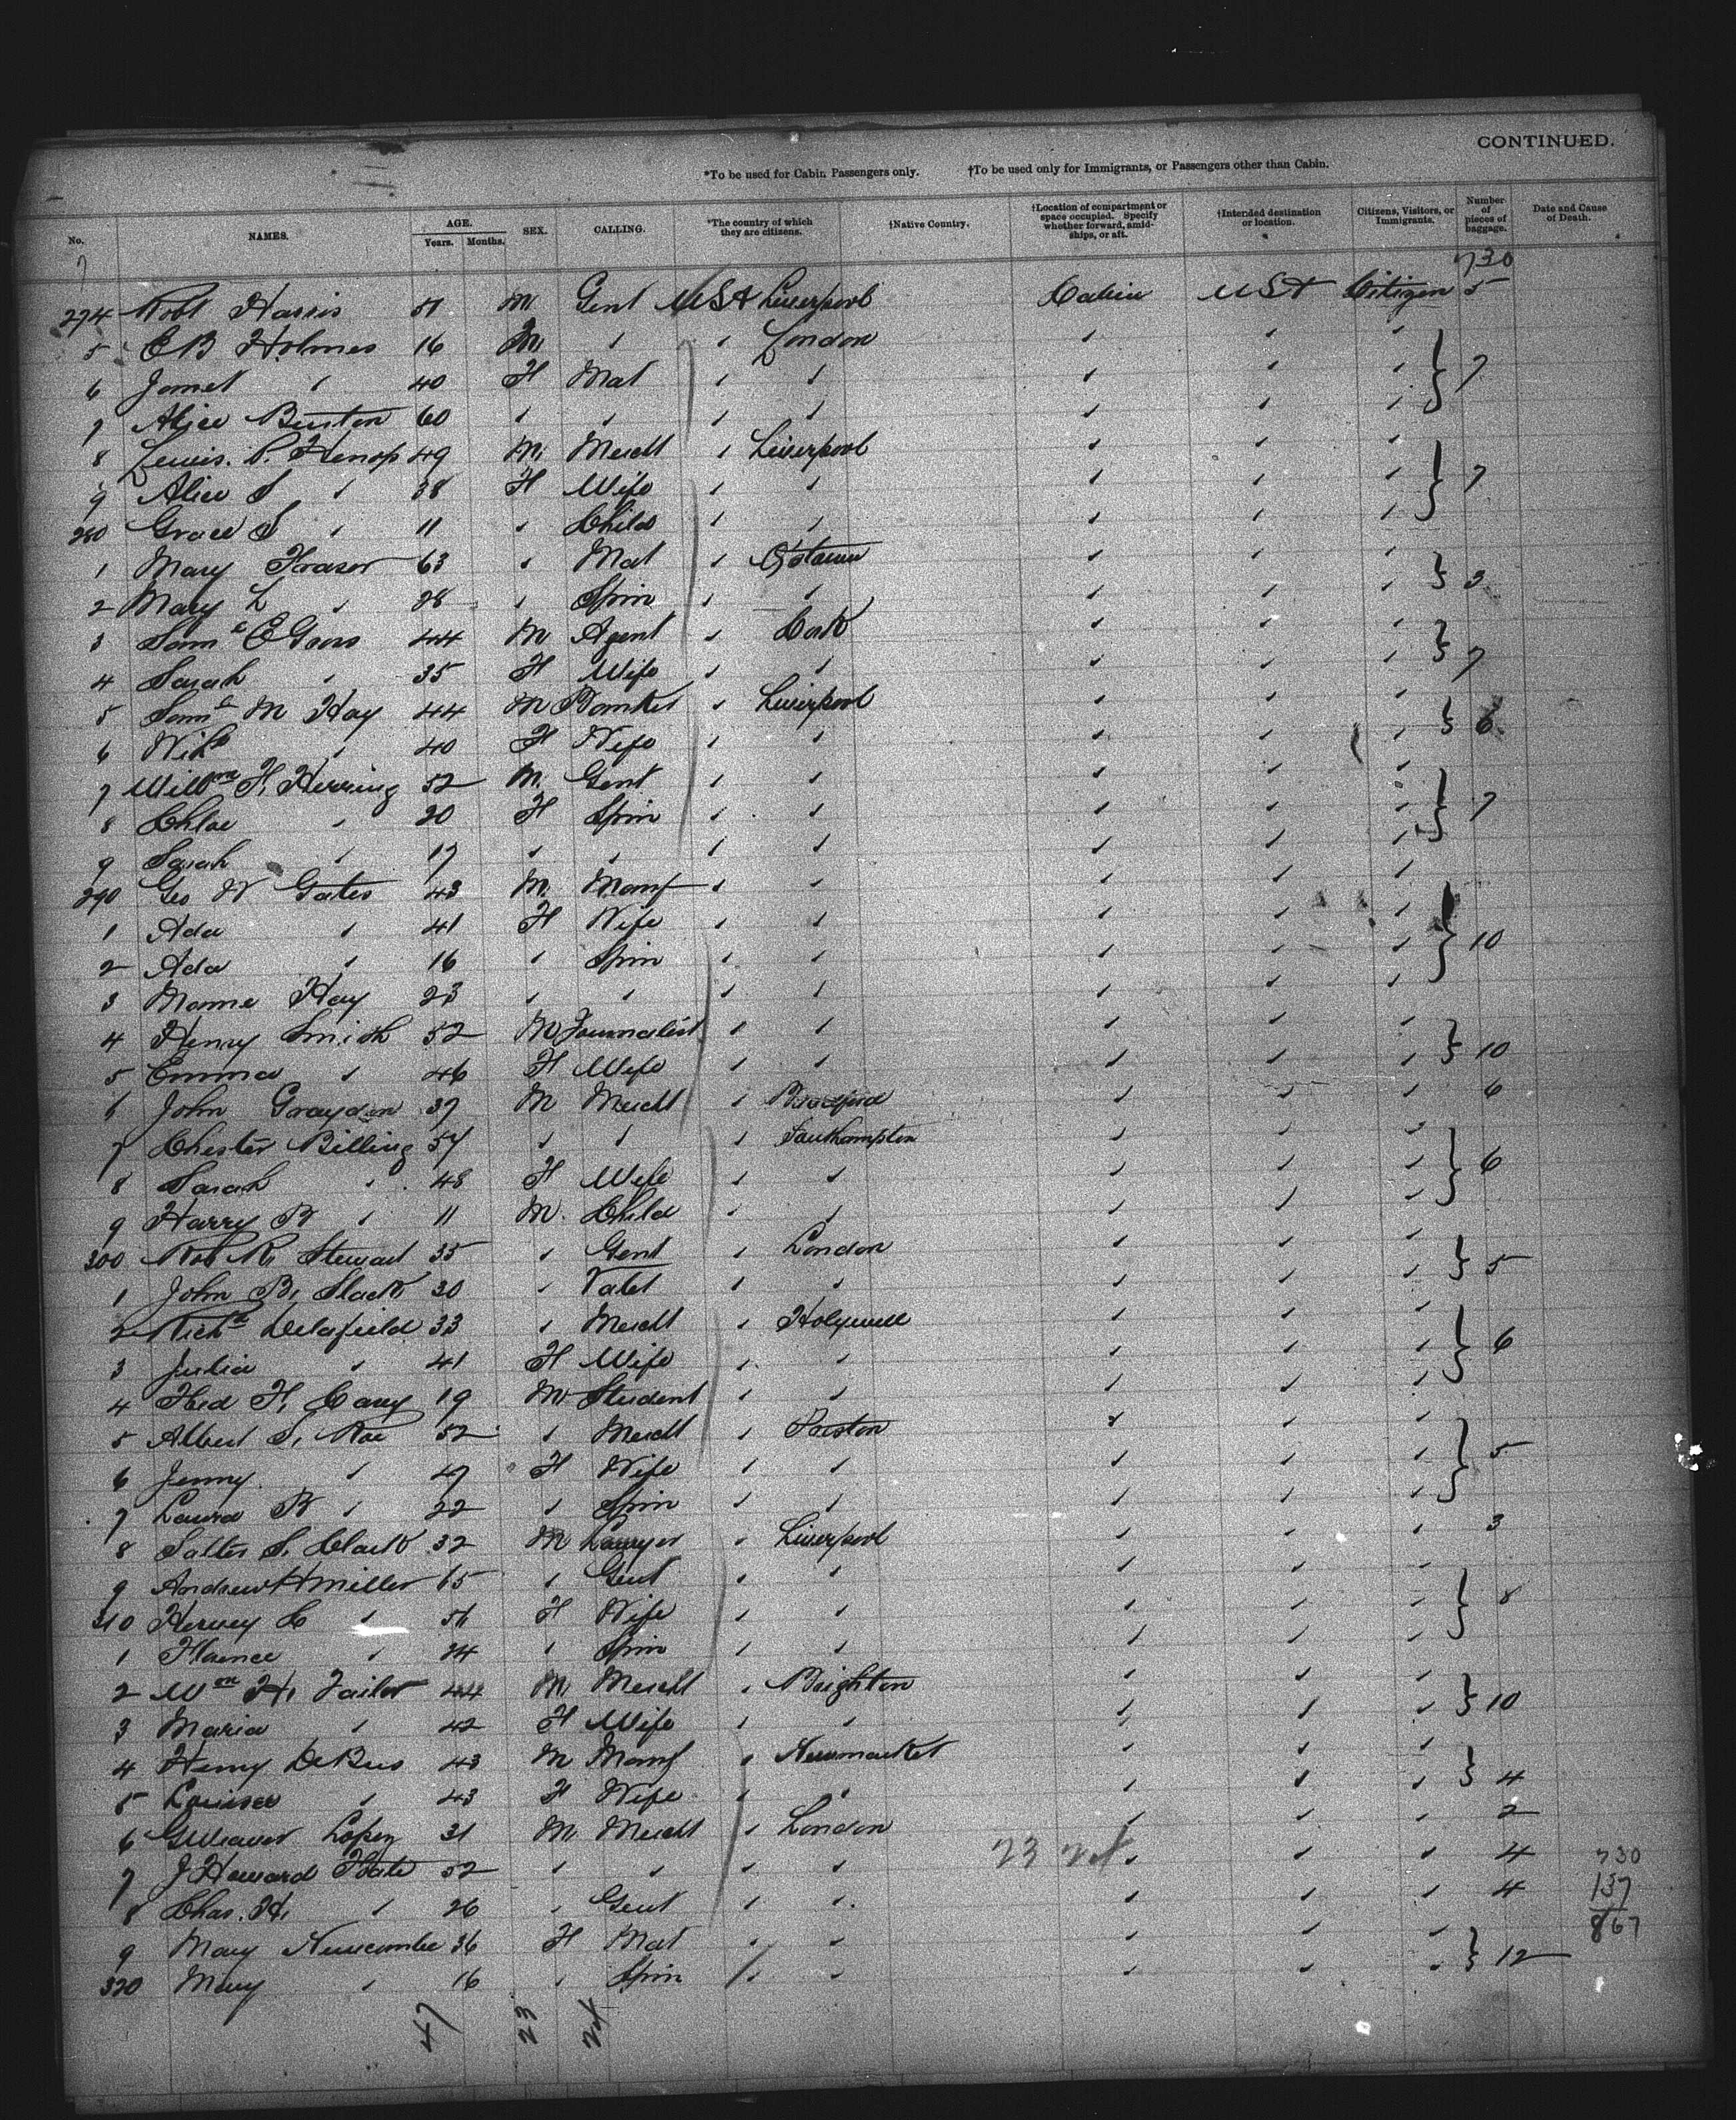 CONTINUED.
*To be used for Cabin Passengers only. †To be used only for Immigrants, or Passengers other than Cabin.
No. NAMES. AGE. Years. Months. SEX. CALLING. *The country of which they are citizens. †Native Country. †Location of compartment or space occupied. Specify whether forward, amidships, or aft. †Intended destination or location. Citizens, Visitors, or Immigrants. Number of pieces of baggage. Date and Cause of Death.
730
274 Robt Harris 51 M Gent USA Liverpool Cabin USA Citizen 5
5 E B Holmes 16 M " " London " " "
6 Jamet " 40 F Mat " " " " " } 7
7 Alice Burton 60 " " " " " " "
8 Lewis. P. Henop 49 M. Mercht " Liverpool " " "
9 Alice S " 38 F Wife " " " " " } 7
280 Grace S " 11 " Child " " " " "
1 Mary Fraser 63 " Mat " Qstown " " "
2 Mary L " 28 " Spin " " " " " } 3
3 Saml E Gross 44 M Agent " Cork " " "
4 Sarah " 35 F Wife " " " " " } 7
5 Saml M Hay 44 M Banker " Liverpool " " "
6 " 40 F Wife " " " " " } 6
7 Willm H. Herring 52 M. Gent " " " " "
8 Chloe " 20 F Spin " " " " " } 7
9 Sarah " 17 " " " " " " "
290 Geo W Gates 43 M. Manf " " " " "
1 Ada " 41 F Wife " " " " "
2 Ada " 16 " Spin " " " " " } 10
3 Mamie Hay 23 " " " " " " "
4 Henry Smith 52 M Journalist " " " " "
5 Emma " 46 F Wife " " " " " } 10
6 John Graydon 37 M Mercht " Bradford " " " 6
7 Chester Billing 54 " " " Southampton " " "
8 Sarah " 48 F Wife " " " " " } 6
9 Harry B " 11 M. Child " " " " "
300 Rob R. Stewart 35 " Gent " London " " "
1 John B. Slack 30 " Valet " " " " " } 5
2 Richd Delafield 33 " Mercht " Holywell " " "
3 Julia " 41 F Wife " " " " " } 6
4 Fred H. Cary 19 M Student " " " " "
5 Albert S. Roe 52 " Mercht " Preston " " "
6 Jenny " 47 F Wife " " " " " } 5
7 Laura B " 22 " Spin " " " " "
8 Salter S. Clark 32 M Lawyer " Liverpool " " " 3
9 Andrew H Miller 65 " Gent " " " " "
310 Hervey C " 51 F Wife " " " " " } 8
1 Florence " 24 " Spin " " " " "
2 Wm H. Tailer 44 M. Mercht " Brighton " " "
3 Maria " 42 F Wife " " " " " } 10
4 Henry DeBus 43 M Manf " Newmarket " " "
5 Louisa " 43 F Wife " " " " " } 4
6 G Weaver Loper 31 M. Mercht " London " " " 2
7 J Howard Foote 52 " " " " 23 24 " " " 4 730
8 Chas. H. " 26 " Gent " " " " " 4 137
867
9 Mary Newcombe 36 F Mat " " " " "
320 Mary " 16 " Spin " " " " " } 12
47 23 24